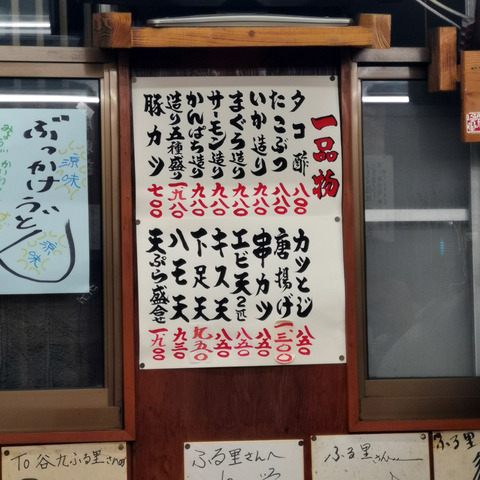 一品物
タコ酢 八〇〇
たこぶつ 八八〇
いか造り 九八〇
まぐろ造り 九八〇
サーモン造り 九八〇
かんぱち造り 九八〇
造り五種盛り 一、九八〇
豚カツ 七〇〇
カツとじ 八五〇
唐揚げ 一、三〇〇
串カツ 八五〇
エビ天2匹 八五〇
キス天 八五〇
下足天 九五〇
ハモ天 九三〇
天ぷら盛合せ 一、九〇〇
ぶっかけうどん
涼味
涼味
To 谷九ふる里さん江
ふる里さんへ
ふる里さんへ
ふる里